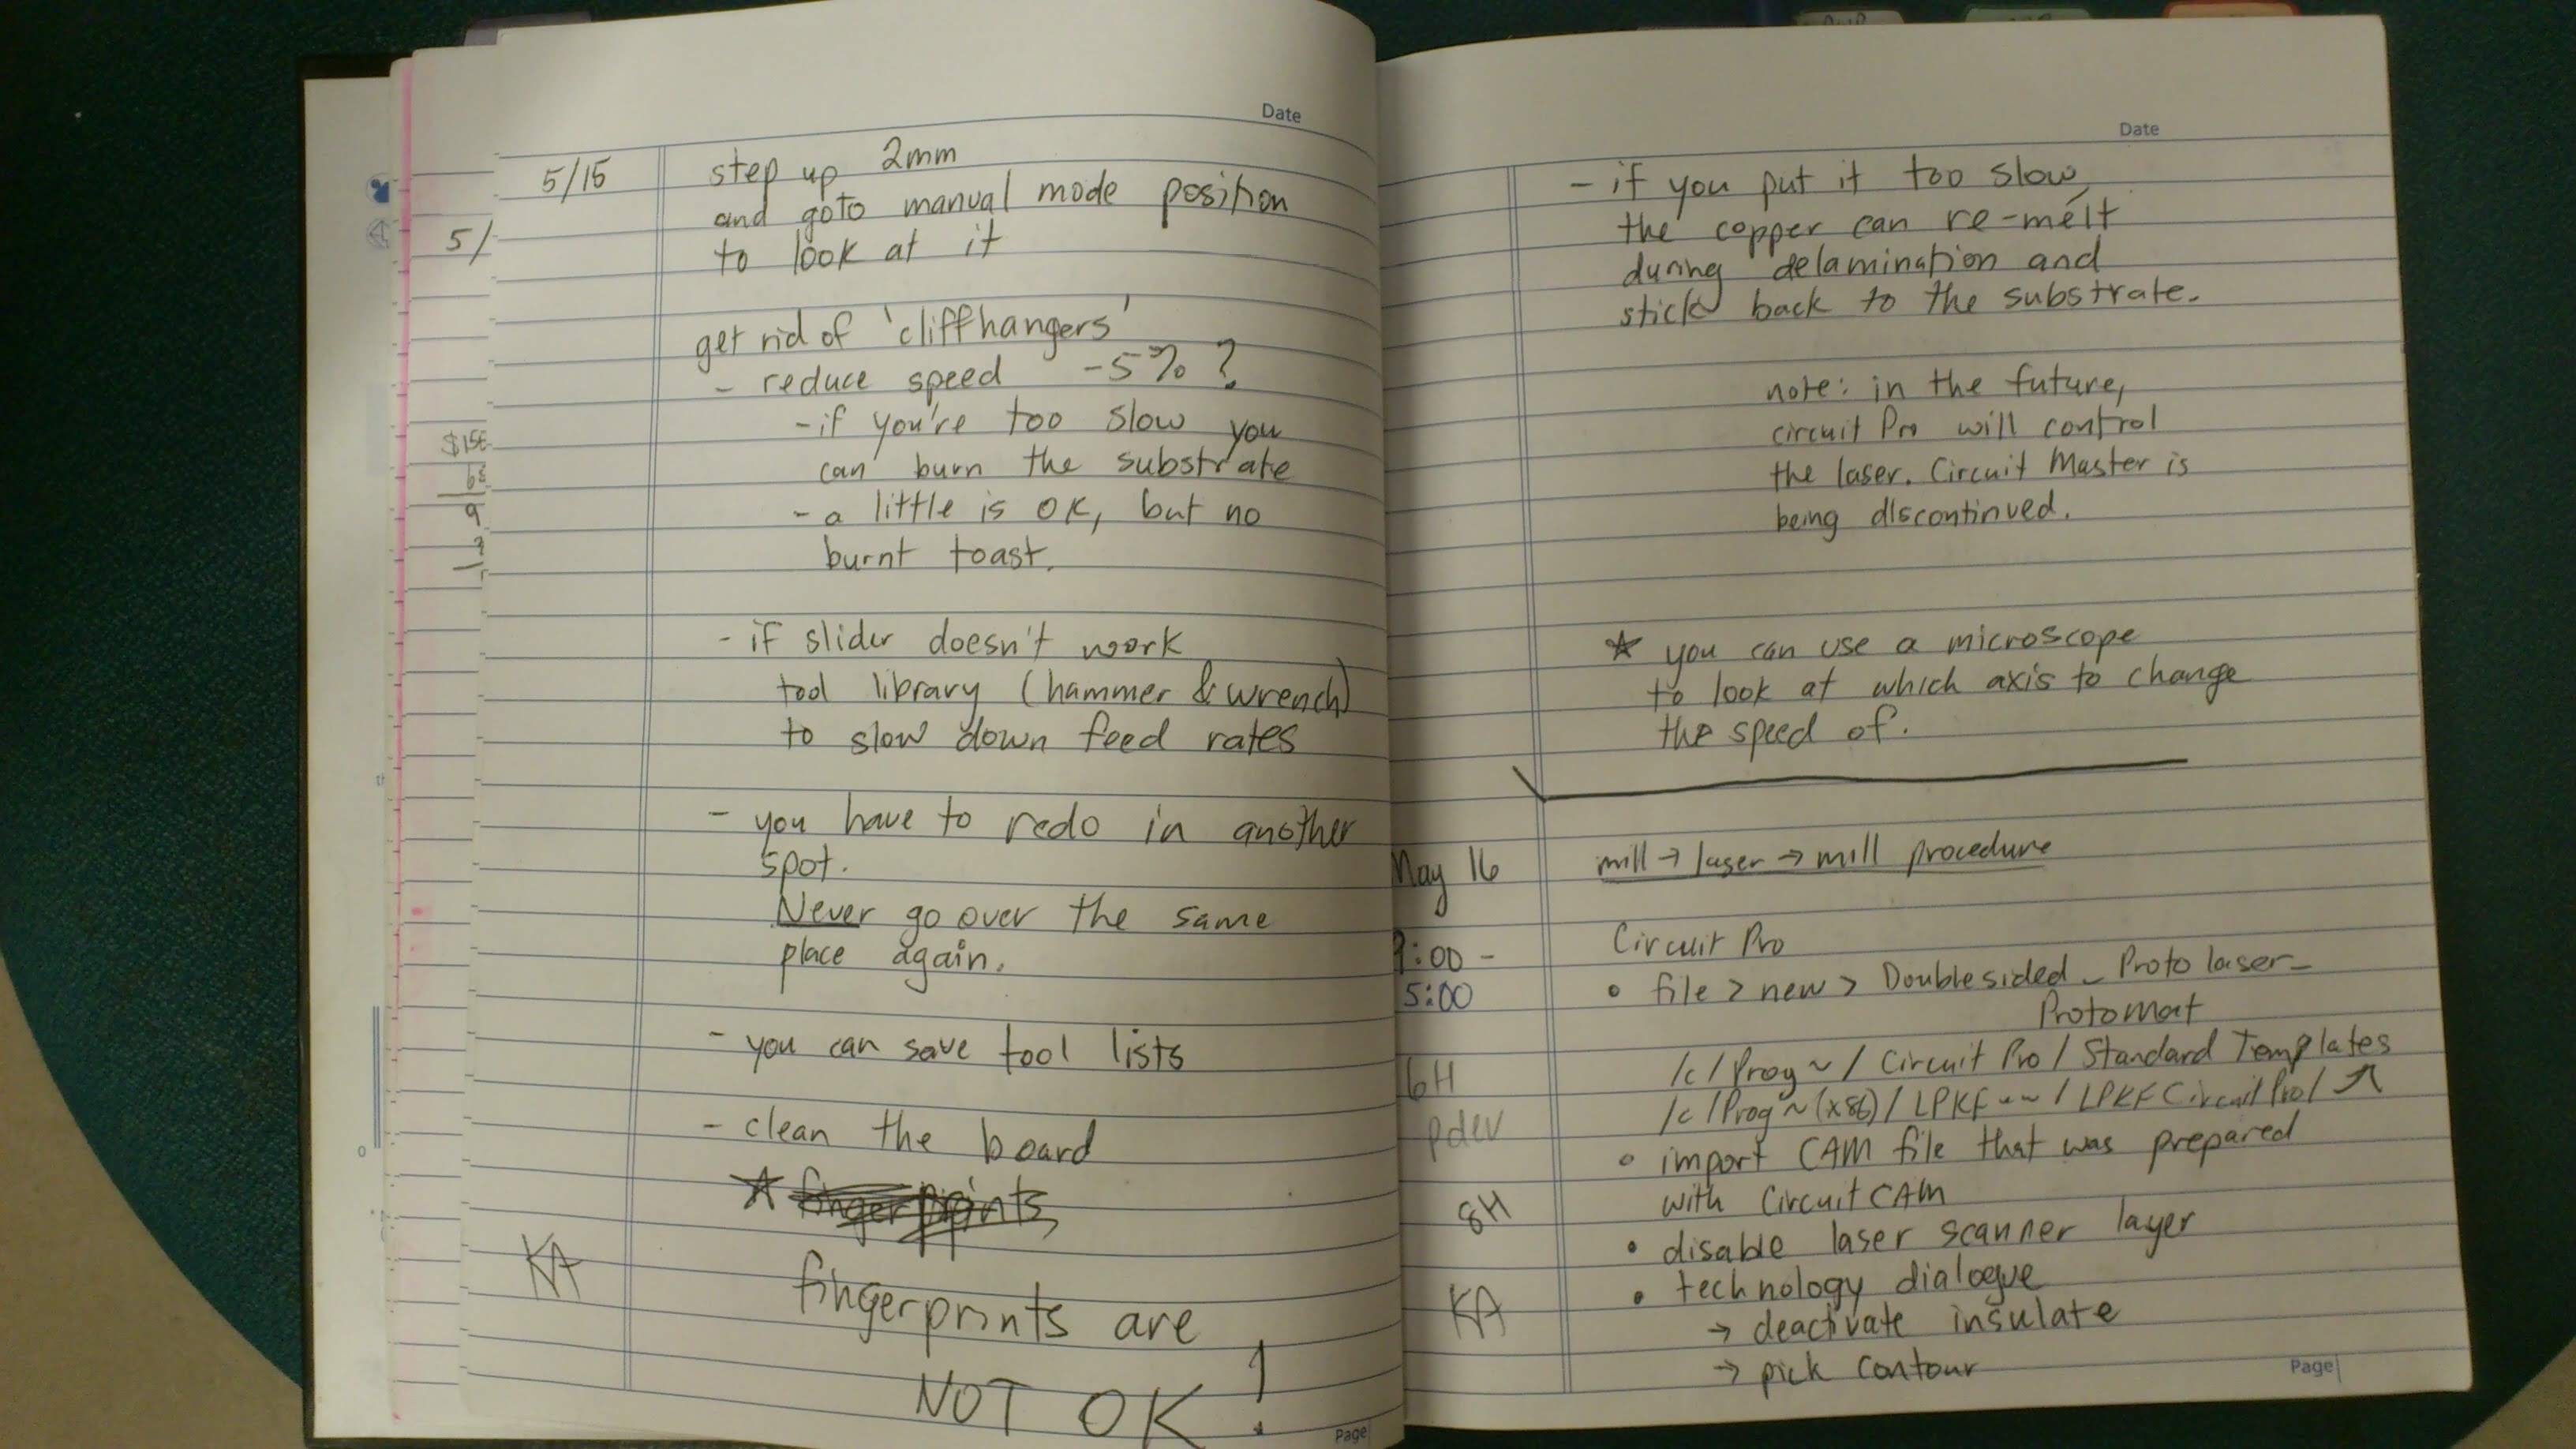 Date
5/15
step up 2mm
and goto manual mode position
to look at it
5/
get rid of 'cliffhangers'
- reduce speed -5% ?
- if you're too slow you
can burn the substrate
- a little is OK, but no
burnt toast.
- if slider doesn't work
tool library (hammer & wrench)
to slow down feed rates
- you have to redo in another
spot.
Never go over the same
place again.
- you can save tool lists
- clean the board
☆ fingerprints
KA
fingerprints are
NOT OK !
Page
Date
- if you put it too slow,
the copper can re-melt
during delamination and
stick back to the substrate.
note: in the future,
circuit Pro will control
the laser. Circuit Master is
being discontinued.
☆ you can use a microscope
to look at which axis to change
the speed of.
May 16
mill → laser → mill procedure
9:00 -
5:00
Circuit Pro
• file > new > Doublesided_Protolaser_
ProtoMat
/c/Prog~/Circuit Pro/Standard Templates
6H
/c/Prog~(x86)/LPKF~~/LPKFCircuitPro/ ↗
pdev
• import CAM file that was prepared
with CircuitCAM
8H
• disable laser scanner layer
• technology dialogue
KA
→ deactivate insulate
→ pick contour
Page